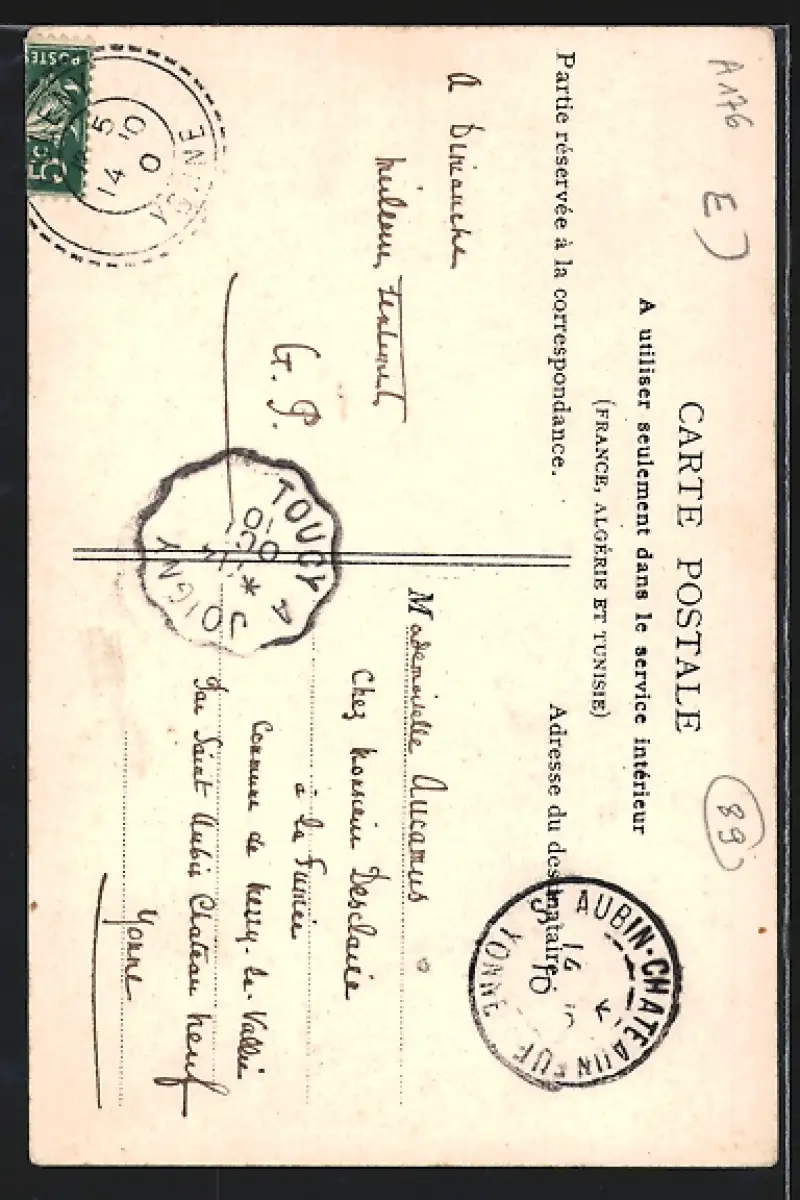 A176
E
CARTE POSTALE
A utiliser seulement dans le service intérieur
(FRANCE, ALGÉRIE ET TUNISIE)
Partie réservée à la correspondance.
Adresse du destinataire
89
A Dimanche
G. P.
Mademoiselle Aucamus
Chez Monsieur Desclaire
à la
Commune de Merry-la-Vallée
Par Saint Aubin Chateau Neuf
Yonne
POSTES
5c
14 5 10
TOUCY A JOIGNY
10
ST AUBIN-CHATEAUNEUF
14 5 10
YONNE